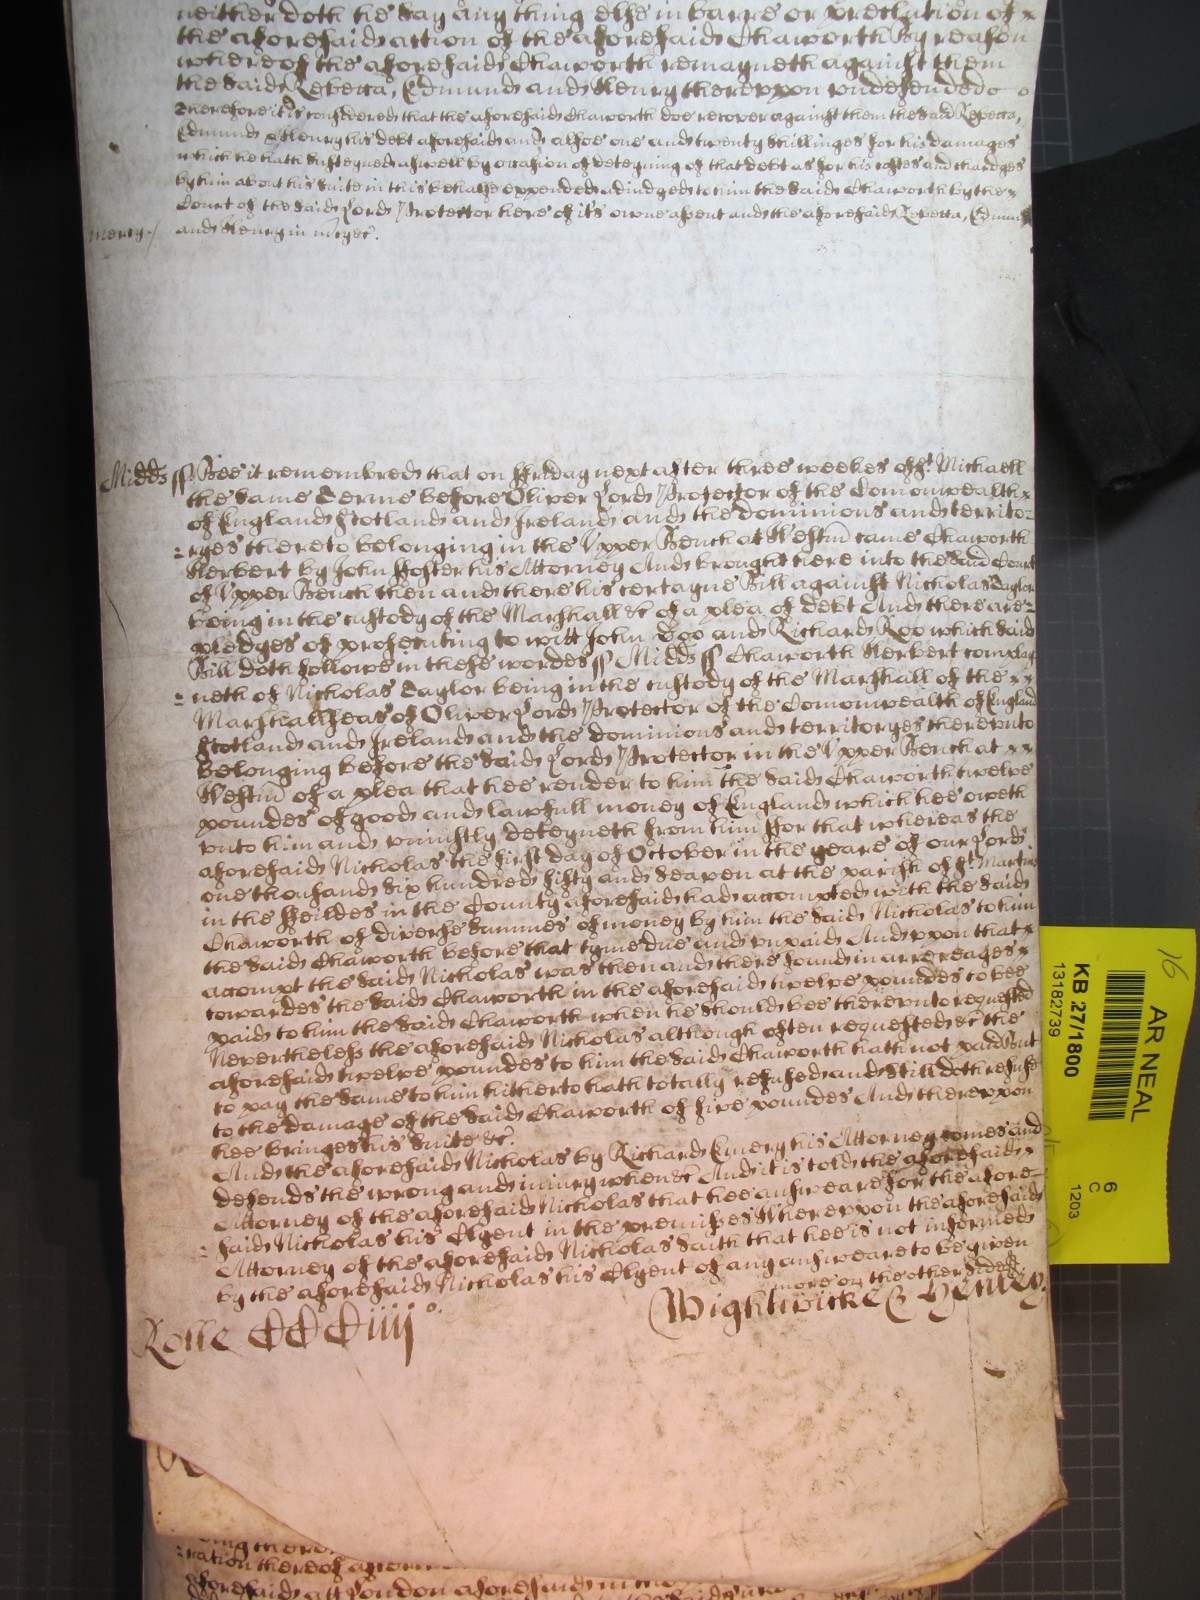 neither doth he say any thing else in barre or preclusion of x
the aforesaid action of the aforesaid Chaworth By reason
whereof the aforesaid Chaworth remayneth against them
the said Rebecca, Edmund and Henry therevpon vndefended o o
Therefore it is considered that the aforesaid Chaworth doe recover against them the said Rebecca,
Edmund & Henry his debt aforesaid and alsoe one and twenty shillinges for his damages
which he hath susteyned aswell by occasion of deteyning of that debt as for his costes and chardges
by him about his suite in this behalfe expended adiudged to him the said Chaworth by the x
Court of the said Lord Protector here of it's owne assent and the aforesaid Rebecca, Edmund
mercy./ and Henry in mercy &c.
Midds ss Bee it remembred that on ffriday next after three weekes of St Michaell
the same Terme before Oliver Lord Protector of the Comonwealth x
of England Scotland and Ireland and the dominions and territo=
=ryes thereto belonging in the Vpper Bench at Westm came Chaworth
Herbert by John ffoster his Attorney And brought here into the said Court
of Vpper Bench then and there his certayne Bill against Nicholas Taylor
being in the custody of the Marshall &c of a plea of debt And there are=
pledges of prosecuting to witt John Doo and Richard Roo which said
Bill doth followe in these wordes ss Midds ss Chaworth Herbert complay
=neth of Nicholas Taylor being in the custody of the Marshall of the x x
Marshallseas of Oliver Lord Protector of the Comonwealth of England
Scotland and Ireland and the dominions and territoryes therevnto
belonging before the said Lord Protector in the Vpper Bench at x x
Westm of a plea that hee render to him the said Chaworth twelve
poundes of good and lawfull money of England which hee oweth
vnto him and vniustly deteyneth from him ffor that whereas the
aforesaid Nicholas the first day of October in the yeare of our Lord
one thousand six hundred fifty and seaven at the parish of St Martins
in the ffeildes in the County aforesaid had accompted with the said
Chaworth of diverse summes of money by him the said Nicholas to him
the said Chaworth before that tyme due and vnpaid And vpon that x
accompt the said Nicholas was then and there found in arrereages x
towardes the said Chaworth in the aforesaid twelve poundes to bee
paid to him the said Chaworth when he should bee therevnto requested
Neverthelesse the aforesaid Nicholas although often requested &c the
aforesaid twelve poundes to him the said Chaworth hath not paid But
to pay the same to him hitherto hath totally refused and still doth refuse
to the damage of the said Chaworth of five poundes And therevpon
hee bringes his suite &c.
And the aforesaid Nicholas by Richard Emery his Attorney comes and
defends the wrong and iniury when &c And it is told the aforesaid x
Attorney of the aforesaid Nicholas that hee answeare for the afore=
=said Nicholas his Clyent in the premisses Wherevpon the aforesaid
Attorney of the aforesaid Nicholas saith that hee is not informed
by the aforesaid Nicholas his Clyent of any answeare to be given
more on the other side
Rolle CCCiiij o. Wightwicke & Henley.
ration thereof
aforesaid att London aforesaid
16
AR NEAL
KB 27/1800
13182739
6
C
1203